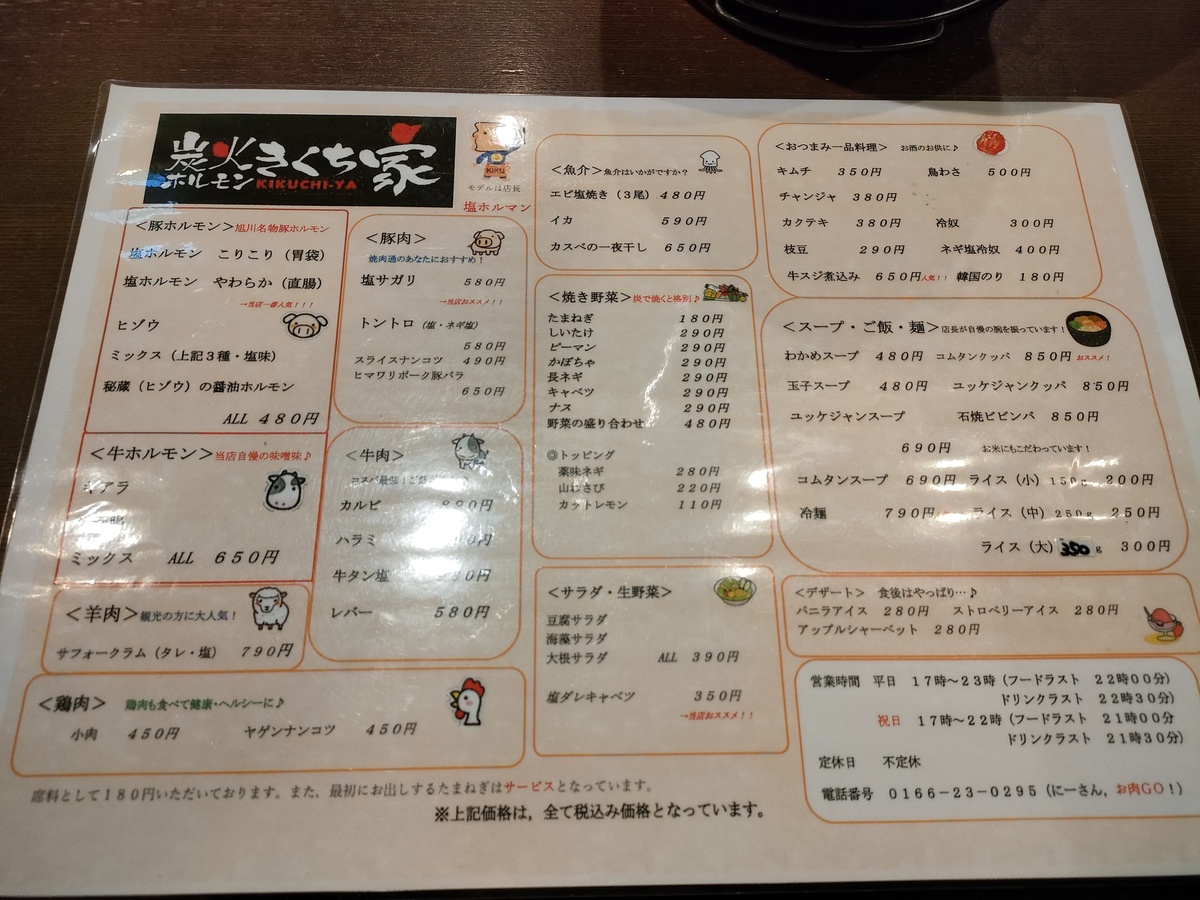 炭火
ホルモン
きくち家
KIKUCHI-YA
KIKU
モデルは店長
塩ホルマン
＜豚ホルモン＞旭川名物豚ホルモン
塩ホルモン　こりこり（胃袋）
塩ホルモン　やわらか（直腸）
→当店一番人気！！！
ヒゾウ
ミックス（上記３種・塩味）
秘蔵（ヒゾウ）の醤油ホルモン
ALL ４８０円
＜牛ホルモン＞当店自慢の味噌味♪
ギアラ
ミックス　ALL ６５０円
＜羊肉＞観光の方に大人気！
サフォークラム（タレ・塩）　７９０円
＜鶏肉＞　鶏肉も食べて健康・ヘルシーに♪
小肉　４５０円　ヤゲンナンコツ　４５０円
＜豚肉＞
焼肉通のあなたにおすすめ！
塩サガリ　５８０円
→当店おススメ！！
トントロ（塩・ネギ塩）
５８０円
スライスナンコツ　４９０円
ヒマワリポーク豚バラ
６５０円
＜牛肉＞
カルビ
ハラミ
牛タン塩
レバー　５８０円
＜魚介＞魚介はいかがですか？
エビ塩焼き（３尾）４８０円
イカ　５９０円
カスベの一夜干し　６５０円
＜焼き野菜＞炭で焼くと格別♪
たまねぎ　１８０円
しいたけ　２９０円
ピーマン　２９０円
かぼちゃ　２９０円
長ネギ　２９０円
キャベツ　２９０円
ナス　２９０円
野菜の盛り合わせ　４８０円
◎トッピング
薬味ネギ　２８０円
山わさび　２２０円
カットレモン　１１０円
＜サラダ・生野菜＞
豆腐サラダ
海藻サラダ
大根サラダ　ALL ３９０円
塩ダレキャベツ　３５０円
→当店おススメ！！
＜おつまみ一品料理＞　お酒のお供に♪
キムチ　３５０円　鳥わさ　５００円
チャンジャ　３８０円
カクテキ　３８０円　冷奴　３００円
枝豆　２９０円　ネギ塩冷奴　４００円
牛スジ煮込み　６５０円人気！！　韓国のり　１８０円
＜スープ・ご飯・麺＞店長が自慢の腕を振っています！
わかめスープ　４８０円　コムタンクッパ　８５０円おススメ！
玉子スープ　４８０円　ユッケジャンクッパ　８５０円
ユッケジャンスープ　石焼ビビンバ　８５０円
６９０円　お米にもこだわっています！
コムタンスープ　６９０円　ライス（小）１５０ｇ　２００円
冷麺　７９０円　ライス（中）２５０ｇ　２５０円
ライス（大）350ｇ　３００円
＜デザート＞　食後はやっぱり…♪
バニラアイス　２８０円　ストロベリーアイス　２８０円
アップルシャーベット　２８０円
営業時間　平日　１７時～２３時（フードラスト　２２時００分）
ドリンクラスト　２２時３０分）
祝日　１７時～２２時（フードラスト　２１時００分
ドリンクラスト　２１時３０分）
定休日　不定休
電話番号　０１６６－２３－０２９５（にーさん，お肉GO！）
席料として１８０円いただいております。また、最初にお出しするたまねぎはサービスとなっています。
※上記価格は，全て税込み価格となっています。